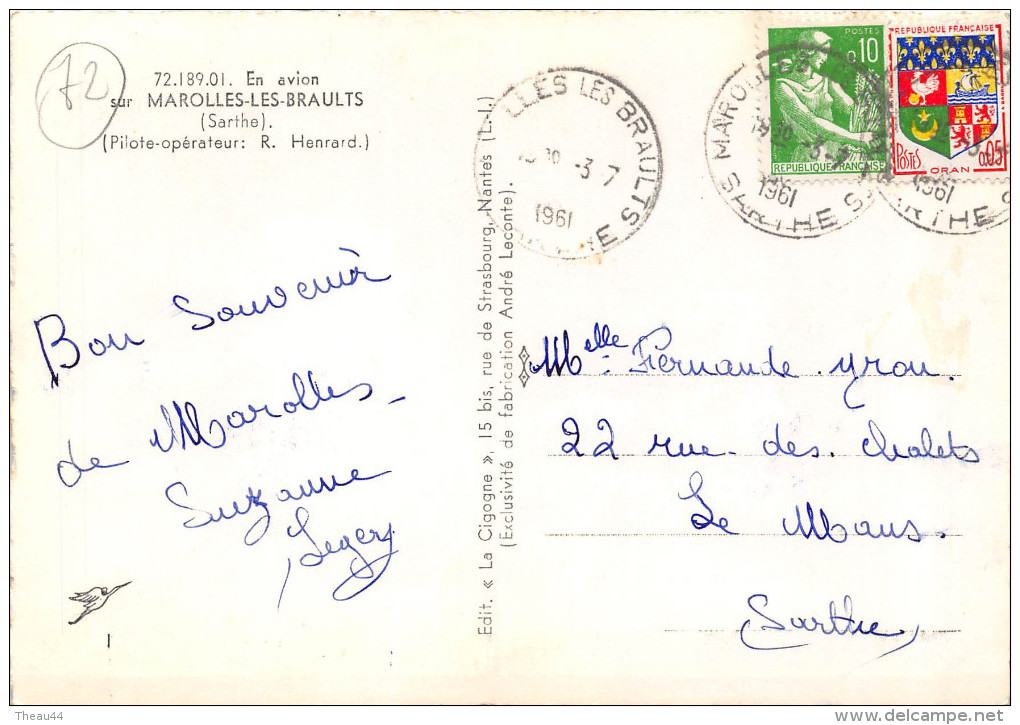 72
72.189.01. En avion
sur MAROLLES-LES-BRAULTS
(Sarthe).
(Pilote-opérateur: R. Henrard.)
Bon Souvenir
de Marolles
Suzanne
Leger
Edit. « La Cigogne », 15 bis, rue de Strasbourg, Nantes (L.-I.)
(Exclusivité de fabrication André Leconte).
LLES LES BRAULTS
30 -3 7
1961
POSTES
0,10
REPUBLIQUE FRANÇAISE
S MAROLLES
1961
SARTHE
REPUBLIQUE FRANÇAISE
POSTES
0,05
ORAN
1961
Melle Fernande Yron.
22 rue des Chalets
Le Mans.
Sarthe
Theau44
delcampe.net